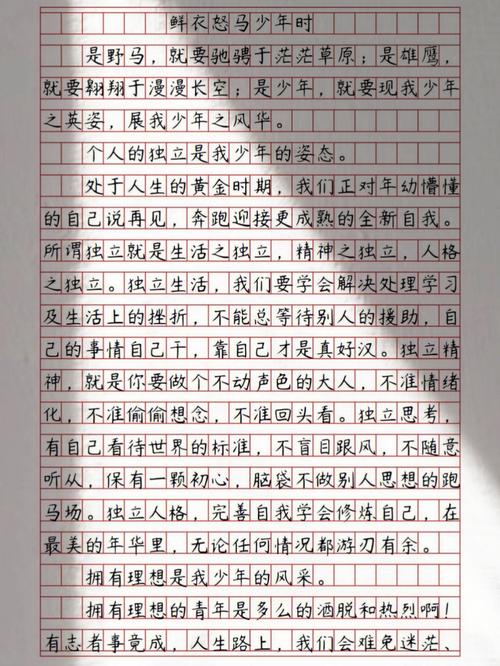 鲜衣怒马少年时
是野马，就要驰骋于茫茫草原；是雄鹰，
就要翱翔于漫漫长空；是少年，就要现我少年
之英姿，展我少年之风华。
个人的独立是我少年的姿态。
处于人生的黄金时期，我们正对年幼懵懂
的自己说再见，奔跑迎接更成熟的全新自我。
所谓独立就是生活之独立，精神之独立，人格
之独立。独立生活，我们要学会解决处理学习
及生活上的挫折，不能总等待别人的援助，自
己的事情自己干，靠自己才是真好汉。独立精
神，就是你要做个不动声色的大人，不准情绪
化，不准偷偷想念，不准回头看。独立思考，
有自己看待世界的标准，不盲目跟风，不随意
听从，保有一颗初心，脑袋不做别人思想的跑
马场。独立人格，完善自我学会修炼自己，在
最美的年华里，无论任何情况都游刃有余。
拥有理想是我少年的风采。
拥有理想的青年是多么的洒脱和热烈啊！
有志者事竟成，人生路上，我们会难免迷茫、